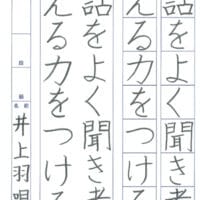 話をよく聞き考
える力をつける
話をよく聞き考
える力をつける
段
級
名前
井上羽